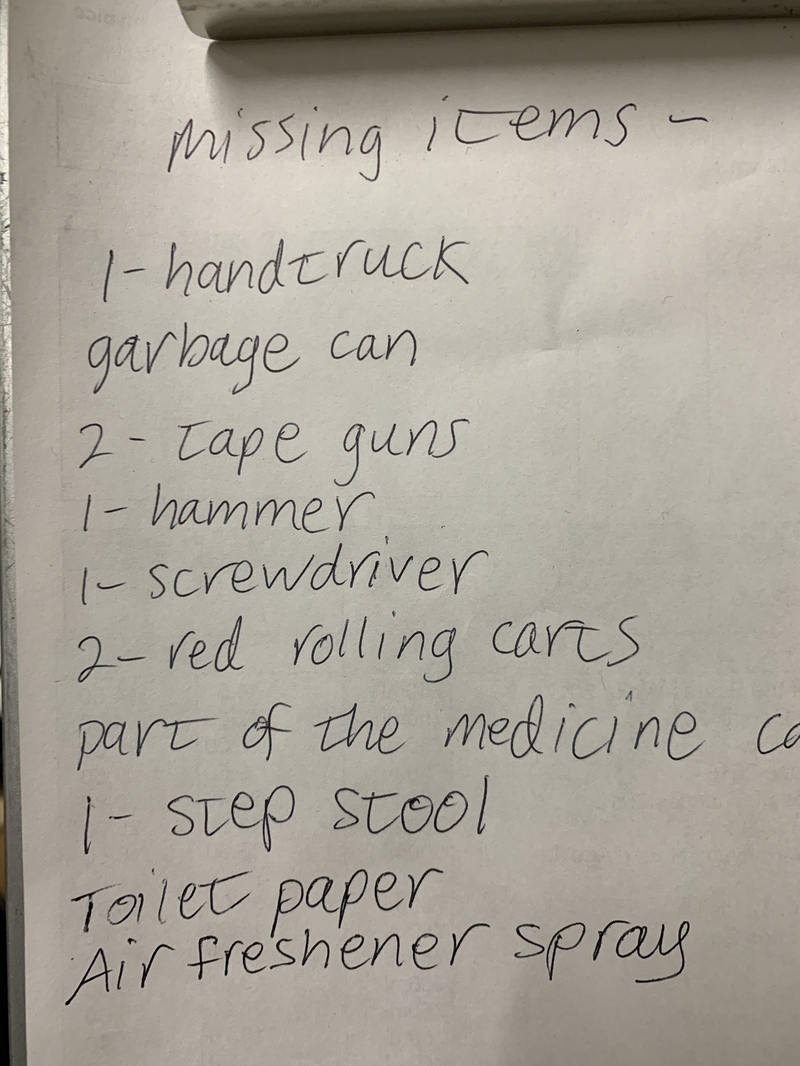 missing items -
1- handtruck
garbage can
2- tape guns
1- hammer
1- screwdriver
2- red rolling carts
part of the medicine
1- step stool
Toilet paper
Air freshener spray